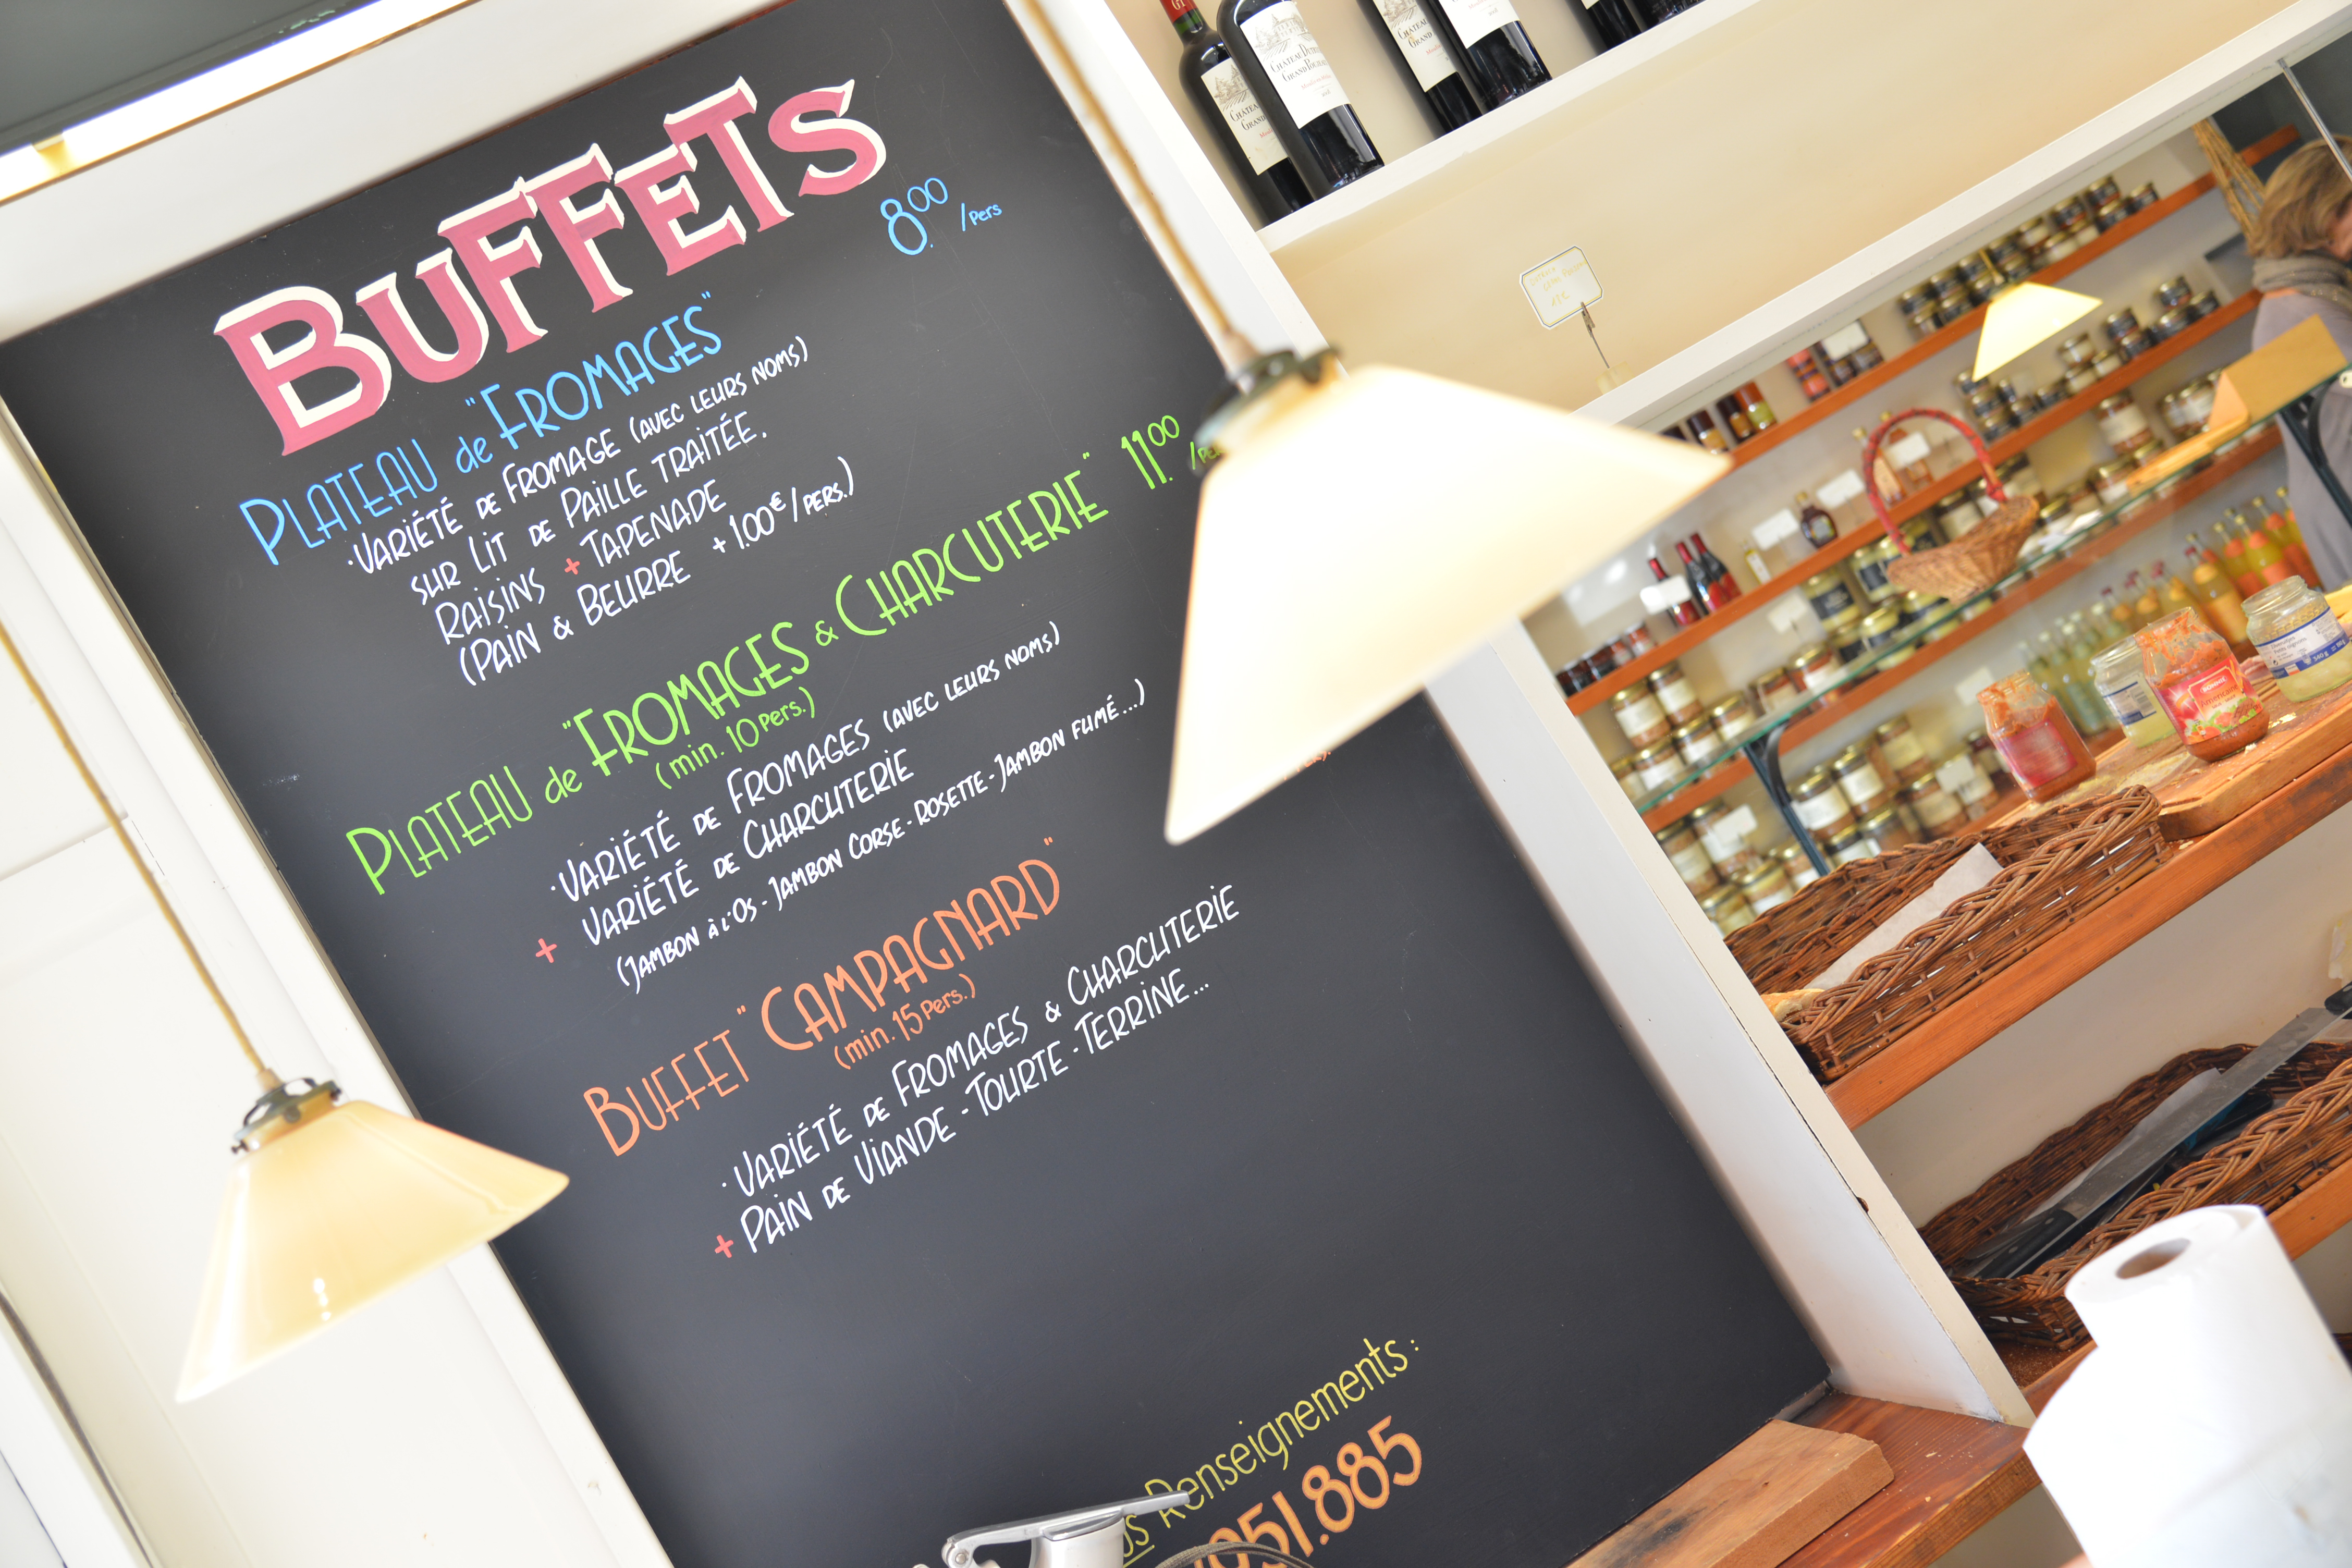 BUFFETS
PLATEAU de "FROMAGES" 8.00 /Pers
· VARIÉTÉ DE FROMAGE (AVEC LEURS NOMS)
SUR LIT DE PAILLE TRAITÉE.
RAISINS + TAPENADE
(PAIN & BEURRE +1.00€/PERS.)
PLATEAU de "FROMAGES & CHARCUTERIE" 11.00
(min. 10 Pers.)
· VARIÉTÉ DE FROMAGES (AVEC LEURS NOMS)
+ VARIÉTÉ DE CHARCUTERIE
(JAMBON À L'OS - JAMBON CORSE - ROSETTE - JAMBON FUMÉ...)
BUFFET "CAMPAGNARD"
(min. 15 Pers.)
· VARIÉTÉ DE FROMAGES & CHARCUTERIE
+ PAIN DE VIANDE - TOURTE - TERRINE...
Renseignements :
951.885
CHÂTEAU
GRAND